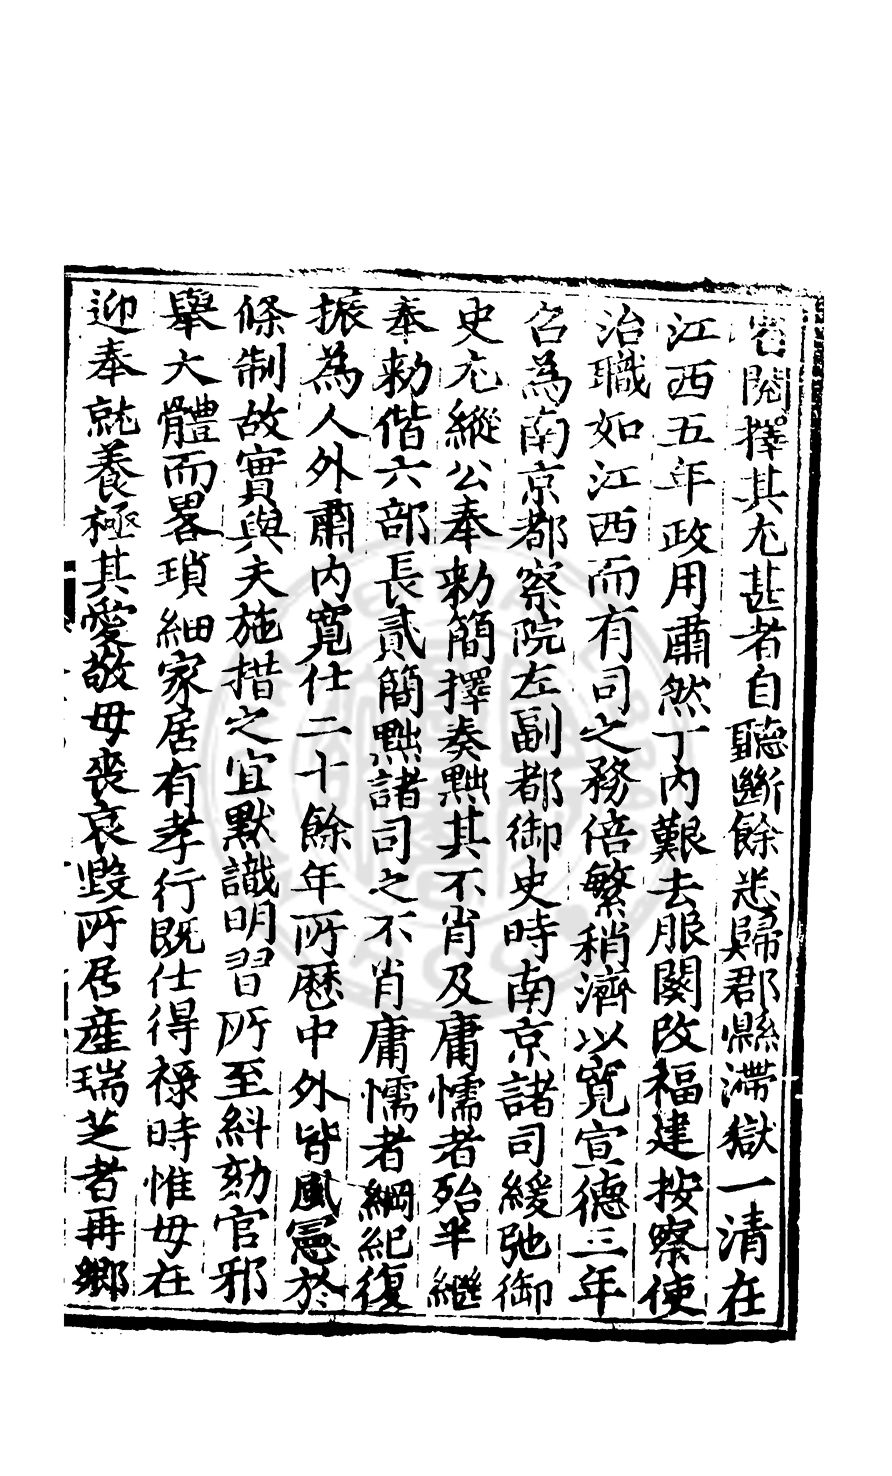 密閱擇其尤甚者自聽斷餘悉歸郡縣滯獄一清在
江西五年政用肅然丁內艱去服闋改福建按察使
治職如江西而有司之務倍繁稍濟以寬宣德三年
召為南京都察院左副都御史時南京諸司緩弛御
史尤縱公奉勑簡擇奏黜其不肖及庸懦者殆半繼
奉勑偕六部長貳簡黜諸司之不肖庸懦者綱紀復
振為人外肅內寬仕二十餘年所歷中外皆風憲於
條制故實與夫施措之宜默識明習所至糾劾官邪
舉大體而畧瑣細家居有孝行既仕得祿時惟母在
迎奉就養極其愛敬母喪哀毀所居產瑞芝者再鄉